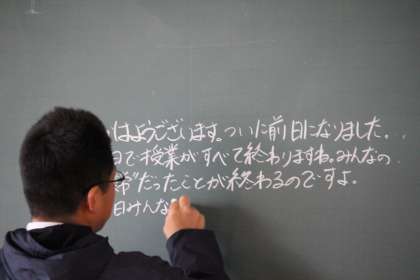 はようございます。ついに前日になりました...
日で授業がすべて終わりますね。みんなの
常"だったことが終わるのですよ。
日みんな